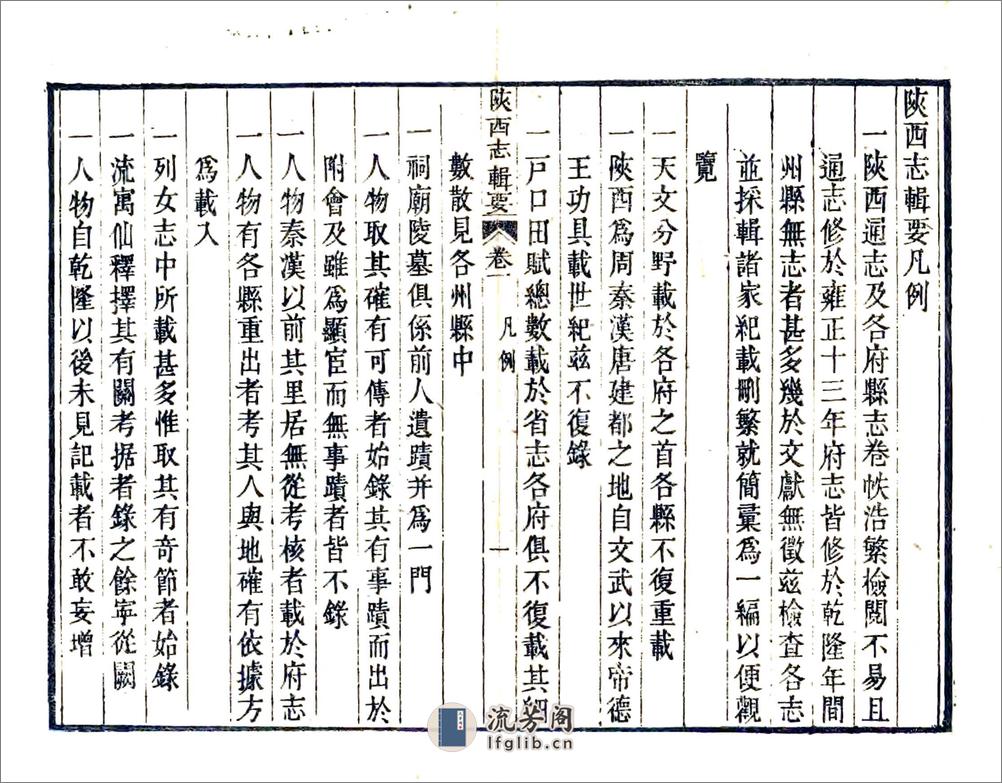 陝西志輯要凡例
一陝西通志及各府縣志卷帙浩繁檢閱不易且
通志修於雍正十三年府志皆修於乾隆年間
州縣無志者甚多幾於文獻無徵茲檢查各志
並採輯諸家紀載刪繁就簡彙爲一編以便觀
覽
一天文分野載於各府之首各縣不復重載
一陝西爲周秦漢唐建都之地自文武以來帝德
王功具載世紀茲不復錄
一戸口田賦總數載於省志各府俱不復載其細
陝西志輯要 卷一 凡例 一
數散見各州縣中
一祠廟陵墓俱係前人遺蹟并爲一門
一人物取其確有可傳者始錄其有事蹟而出於
附會及雖爲顯宦而無事蹟者皆不錄
一人物秦漢以前其里居無從考核者載於府志
一人物有各縣重出者考其人與地確有依據方
爲載入
一列女志中所載甚多惟取其有奇節者始錄
一流寓仙釋擇其有關考据者錄之餘寧從闕
一人物自乾隆以後未見記載者不敢妄增
流芳阁
lfglib.cn